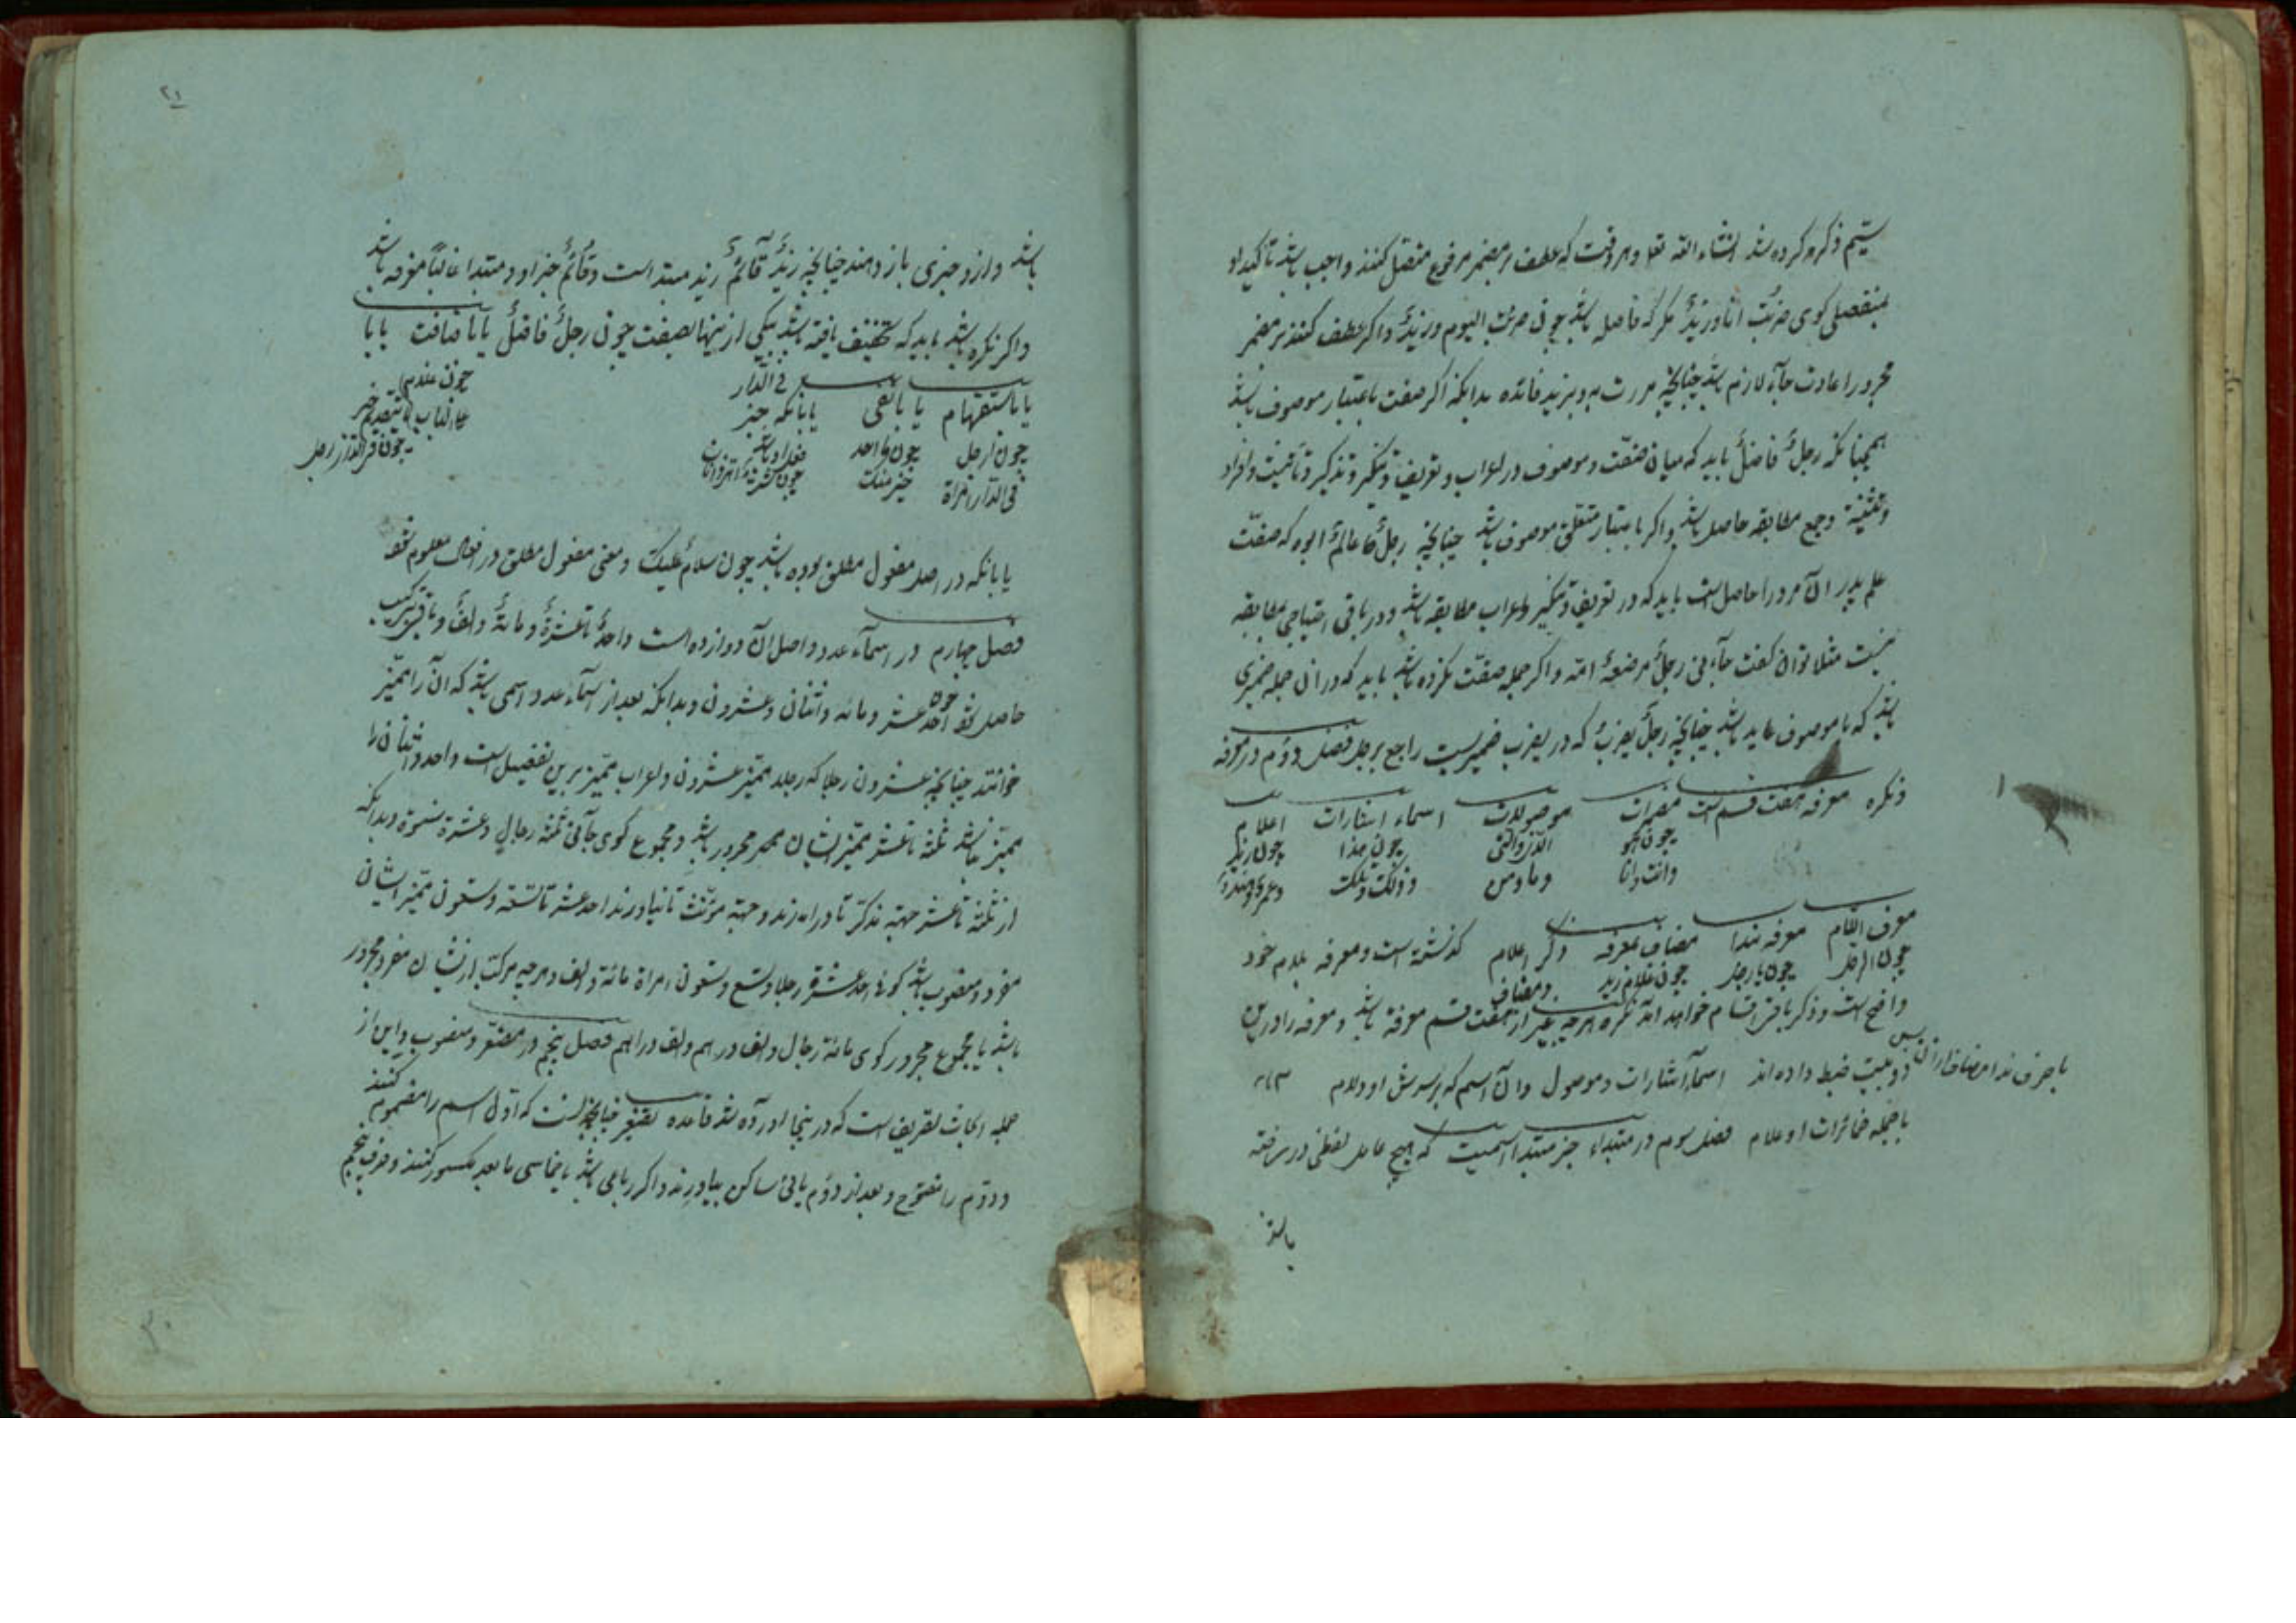 سیّم ذکر کرده شد انشاء الله تعا و هر وقت که عطف بر مضمر مرفوع متصل کنند واجب باشد تاکید او
بمنفصلی کوی ضربت انا و زیدٌ مکر که فاصله باشد چون ضربت الیوم و زیدٌ و اکر عطف کنند بر مضمر
مجرور اعادت جاره لازم باشد چنانچه مررت به و بزید فائده بدانکه اکر صفت باعتبار موصوف باشد
همچنانکه رجلٌ فاضلٌ باید که میان صفت و موصوف در اعراب و تعریف و تنکیر و تذکیر و تانیث و افراد
و تثنیه و جمع مطابقه حاصل باشد و اکر باعتبار متعلق موصوف باشد چنانچه رجلٌ عالمٌ ابوه که صفت
علم پدر آن مرد را حاصل است باید که در تعریف و تنکیر و اعراب مطابقه باشد و در باقی احتیاج بمطابقه
نیست مثلا توان کفت جآءنی رجلٌ مرضعهٌ امّه و اکر جمله صفت نکره باشد باید که در ان جمله ضمیری
باشد که با موصوف عاید باشد چنانچه رجلٌ یضرب که در یضرب ضمیریست راجع برجل فصل دوّم در معرفه
و نکره معرفه هفت قسم است مضمرات موصولات اسماء اشارات اعلام
چون هو الذی و التی چون هذا چون زید
و انت و انا و ما و من و ذلک و تلک و عمرو و هند
معرف اللّام معرفه بندا مضاف بمعرفه و ذکر اعلام کذشته است و معرفه بلام خود
چون الرجل چون یا رجل چون غلام زید و مضاف
واضح است و ذکر باقی اقسام خواهد آمد نکره هرچه غیر از هفت قسم معرفه باشد و معرفه را در این
دو بیت ضبط داده اند اسمآء اشارات و موصول و ان اسم که بر سرش او دلام
با حرف ندا مضاف از آن پس
با جمله ضمائرات و اعلام فصل سوم در مبتداء خبر مبتدا اسمیست که هیچ عامل لفظی در سر نرفته
باشد
۲۱
باشد و از و خبری باز دهند چنانچه زیدٌ قائمٌ زید مبتدا است و قائمٌ خبر او و مبتدا غالباً معرفه باشد
و اکر نکره باشد باید که تخفیف یافته باشد بیکی از ینها بصفت چون رجلٌ فاضلٌ یا باضافت یا با
فی الدّار
یا باستفهام یا بانفی یا بانکه خبر یا بتقدیم خبر
چون ارجل چون ما احد چون فی الدار رجل
فی الدّار ام امراة خیر منک
یا بانکه در اصل مفعول مطلق بوده باشد چون سلامٌ علیک و معنی مفعول مطلق در افعال معلوم شود
فصل چهارم در اسمآء عدد و اصل آن دوازده است واحدٌ تا عشرةٌ و مائةٌ و الفٌ و باقی بترکیب
حاصل شود چون احد عشر و مائه و اثنان و عشرون و بدانکه بعد از اسمآء عدد اسمی باشد که آن را ممیّز
خوانند چنانچه عشرون رجلا که رجلا ممیّز عشرون و اعراب ممیّز برین تفصیل است واحد و اثنان را
ممیّز نباشد ثلثه تا عشر ممیّز ایشان مجرور باشد و مجموع کوی جآءنی ثلثة رجالٍ و عشرة نسوة و بدانکه
از ثلثه تا عشر جهة مذکّر تا در اورند و جهة مؤنّث تا نیاورند احد عشر تا تسعة و تسعون ممیّز ایشان
مفرد و منصوب باشد کوئی احد عشر رجلا و تسع و تسعون امراة مائة و الف و هرچه مرکب از ایشان مفرد و مجرور
باشد یا مجموع مجرور کوی مائة رجال و الف درهم و الف دراهم فصل پنجم در مصغّر و منسوب و این از
جمله ابحاث تصریف است که در ینجا اورده شد قاعده تصغیر چنانچه انست که اوّل اسم را مضموم کنند
و دوّم را مفتوح و بعد از دوّم یائی ساکن بیاورند و اکر رباعی باشد یا خماسی ما بعد مکسور کنند و حرف پنجم